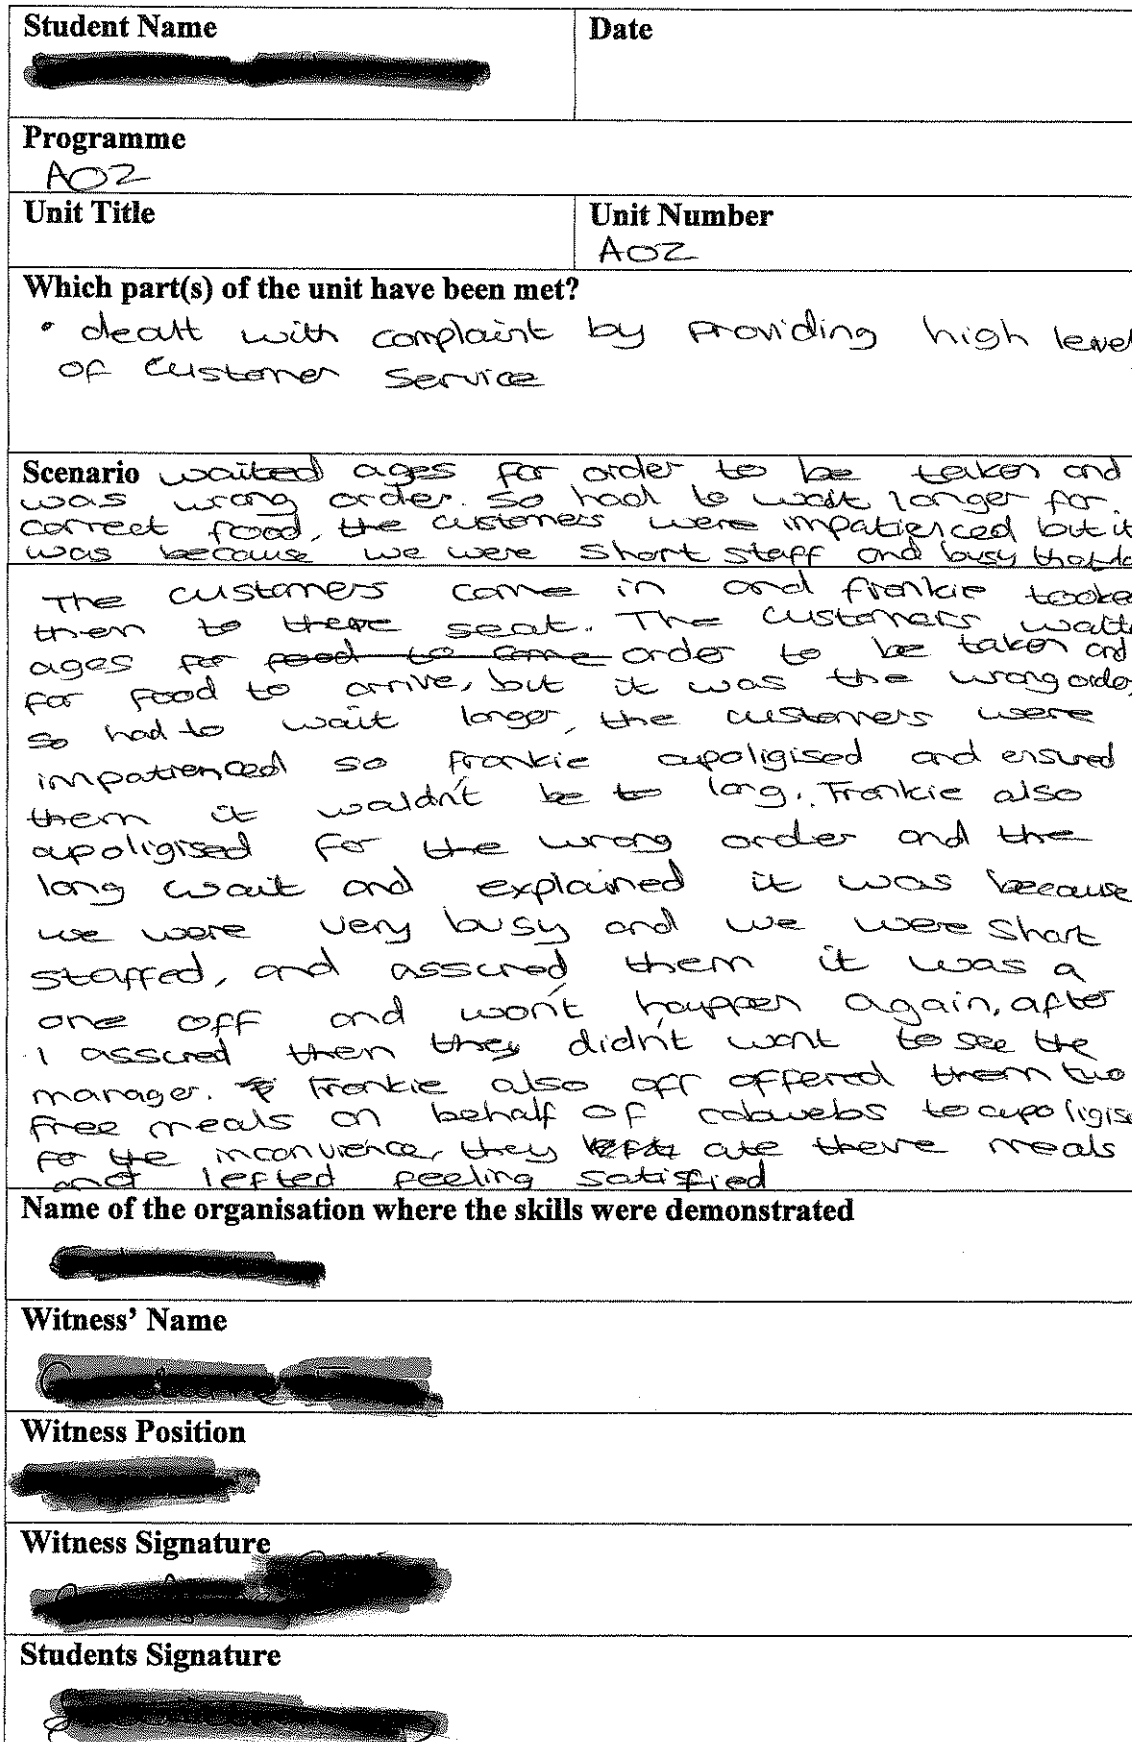 Student Name
Date
Programme
AO2
Unit Title
Unit Number
AO2
Which part(s) of the unit have been met?
• dealt with complaint by providing high level
of customer service
Scenario waited ages for order to be taken and
was wrong order. So had to wait longer for
correct food, the customers were impatienced but it
was because we were short staff and busy that
The customers come in and frankie tooke
them to there seat. The customers
ages for food to come order to be taken and
for food to arrive, but it was the wrong order,
so had to wait longer, the customers were
impatienced so frankie apoligised and ensured
them it wouldn't be to long. Frankie also
apoligised for the wrong order and the
long wait and explained it was because
we were very busy and we were short
staffed, and assured them it was a
one off and won't happen again, after
I assured them they didn't want to see the
manager. Frankie also off offered them two
free meals on behalf of cobwebs to apoligise
for the inconvience, they ate there meals
and lefted feeling satisfied
Name of the organisation where the skills were demonstrated
Witness' Name
Witness Position
Witness Signature
Students Signature